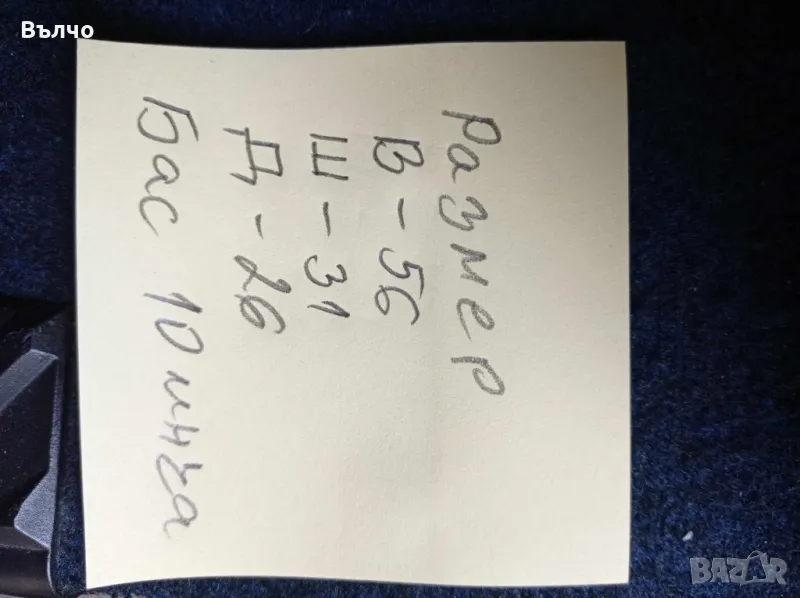 Вълчо
Размер
В - 56
Ш - 31
Д - 26
Бас 10 инча
BAZAR